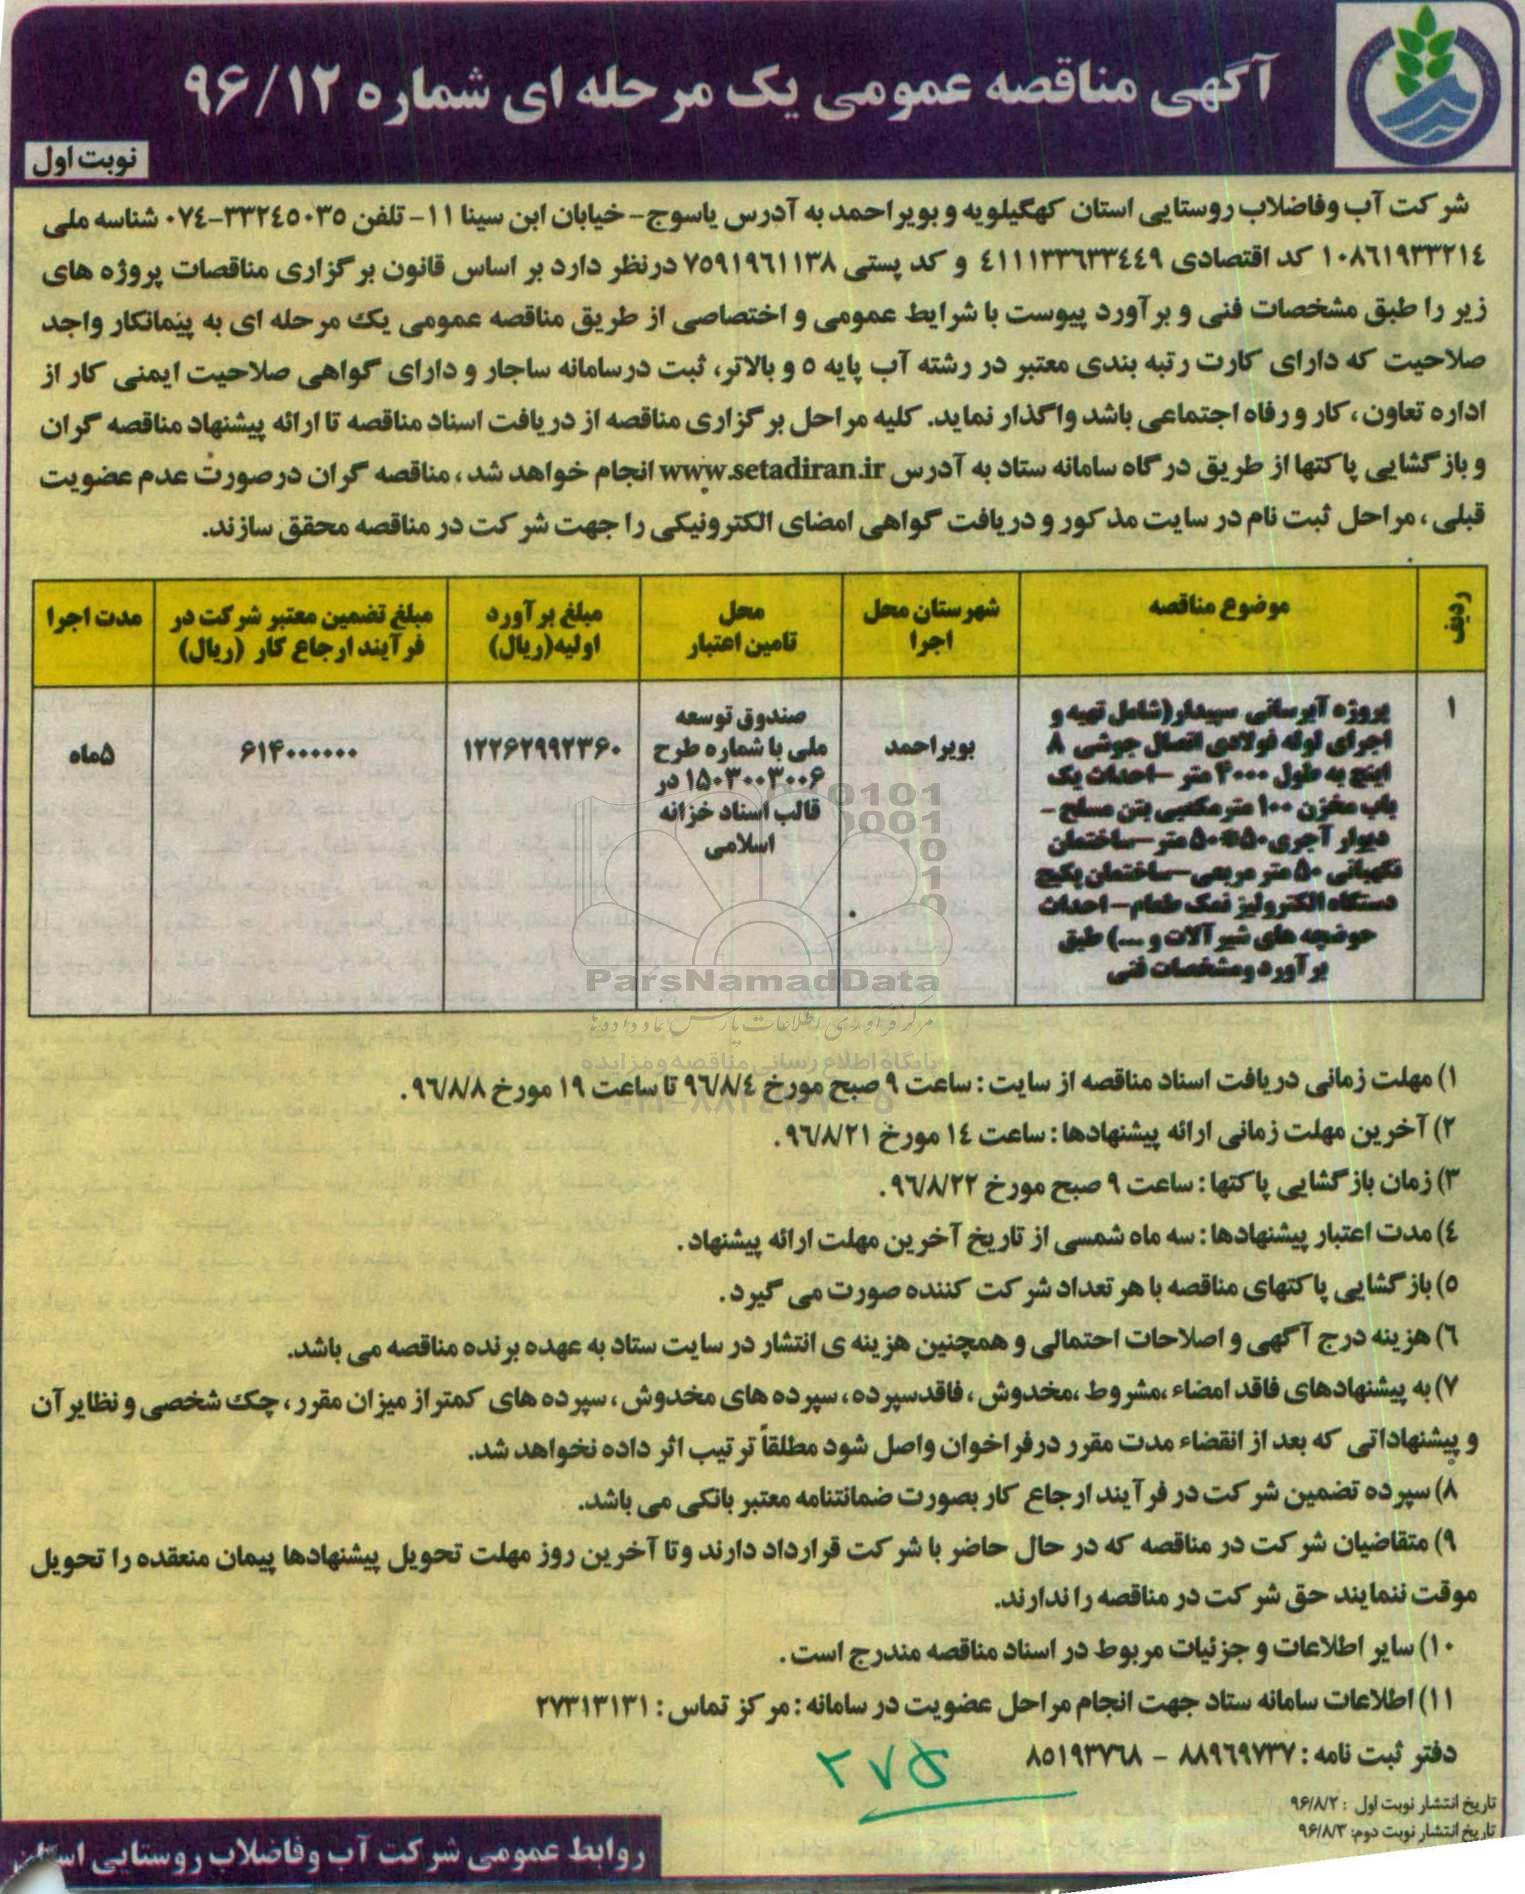 آگهی مناقصه عمومی یک مرحله ای شماره ۹۶/۱۲
نوبت اول
شرکت آب وفاضلاب روستایی استان کهگیلویه و بویراحمد به آدرس یاسوج- خیابان ابن سینا ۱۱- تلفن ۳۳۲٤۵۰۳۵-۰۷٤ شناسه ملی
۱۰۸٦۱۹۳۳۲۱٤ کد اقتصادی ٤۱۱۱۳۳٦۳۳٤٤۹ و کد پستی ۷۵۹۱۹٦۱۱۳۸ درنظر دارد بر اساس قانون برگزاری مناقصات پروژه های
زیر را طبق مشخصات فنی و برآورد پیوست با شرایط عمومی و اختصاصی از طریق مناقصه عمومی یک مرحله ای به پیمانکار واجد
صلاحیت که دارای کارت رتبه بندی معتبر در رشته آب پایه ۵ و بالاتر، ثبت درسامانه ساجار و دارای گواهی صلاحیت ایمنی کار از
اداره تعاون، کار و رفاه اجتماعی باشد واگذار نماید. کلیه مراحل برگزاری مناقصه از دریافت اسناد مناقصه تا ارائه پیشنهاد مناقصه گران
و بازگشایی پاکتها از طریق درگاه سامانه ستاد به آدرس www.setadiran.ir انجام خواهد شد، مناقصه گران درصورت عدم عضویت
قبلی، مراحل ثبت نام در سایت مذکور و دریافت گواهی امضای الکترونیکی را جهت شرکت در مناقصه محقق سازند.
ردیف
موضوع مناقصه
شهرستان محل
اجرا
محل
تامین اعتبار
مبلغ برآورد
اولیه(ریال)
مبلغ تضمین معتبر شرکت در
فرآیند ارجاع کار (ریال)
مدت اجرا
۱
پروژه آبرسانی سپیدار(شامل تهیه و
اجرای لوله فولادی اتصال جوشی ۸
اینچ به طول ۴۰۰۰ متر -احداث یک
باب مخزن ۱۰۰ مترمکعبی بتن مسلح -
دیوار آجری۵۰*۵۰ متر-ساختمان
نگهبانی ۵۰ متر مربعی-ساختمان پکیج
دستگاه الکترولیز نمک طعام- احداث
حوضچه های شیرآلات و ...) طبق
برآورد ومشخصات فنی
بویراحمد
صندوق توسعه
ملی با شماره طرح
۱۵۰۳۰۰۳۰۰۶ در
قالب اسناد خزانه
اسلامی
۱۲۲۶۲۹۹۲۳۶۰
۶۱۴۰۰۰۰۰۰
۵ماه
ParsNamadData
مرکز فرآوری اطلاعات پارس نماد داده ها
پایگاه اطلاع رسانی مناقصه و مزایده
۱) مهلت زمانی دریافت اسناد مناقصه از سایت : ساعت ۹ صبح مورخ ۹٦/۸/٤ تا ساعت ۱۹ مورخ ۹٦/۸/۸.
۲) آخرین مهلت زمانی ارائه پیشنهادها: ساعت ۱٤ مورخ ۹٦/۸/۲۱.
۳) زمان بازگشایی پاکتها : ساعت ۹ صبح مورخ ۹٦/۸/۲۲.
٤) مدت اعتبار پیشنهادها : سه ماه شمسی از تاریخ آخرین مهلت ارائه پیشنهاد.
۵) بازگشایی پاکتهای مناقصه با هر تعداد شرکت کننده صورت می گیرد.
٦) هزینه درج آگهی و اصلاحات احتمالی و همچنین هزینه ی انتشار در سایت ستاد به عهده برنده مناقصه می باشد.
۷) به پیشنهادهای فاقد امضاء ،مشروط ،مخدوش ، فاقدسپرده، سپرده های مخدوش، سپرده های کمتراز میزان مقرر، چک شخصی و نظایر آن
و پیشنهاداتی که بعد از انقضاء مدت مقرر درفراخوان واصل شود مطلقاً ترتیب اثر داده نخواهد شد.
۸) سپرده تضمین شرکت در فرآیند ارجاع کار بصورت ضمانتنامه معتبر بانکی می باشد.
۹) متقاضیان شرکت در مناقصه که در حال حاضر با شرکت قرارداد دارند وتا آخرین روز مهلت تحویل پیشنهادها پیمان منعقده را تحویل
موقت ننمایند حق شرکت در مناقصه را ندارند.
۱۰) سایر اطلاعات و جزئیات مربوط در اسناد مناقصه مندرج است.
۱۱) اطلاعات سامانه ستاد جهت انجام مراحل عضویت در سامانه : مرکز تماس : ۲۷۳۱۳۱۳۱
دفتر ثبت نامه : ۸۸۹٦۹۷۳۷ - ۸۵۱۹۳۷٦۸
۲۷۵
تاریخ انتشار نوبت اول : ۹۶/۸/۲
تاریخ انتشار نوبت دوم: ۹۶/۸/۳
روابط عمومی شرکت آب وفاضلاب روستایی استان